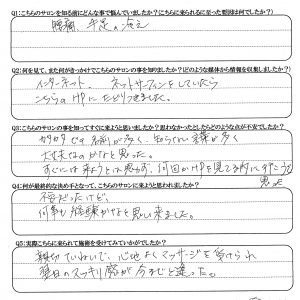 Q1:こちらのサロンを知る前にどんな事で悩んでいましたか?こちらに来られるに至った要因は何でしたか?
腰痛、手足の冷え
Q2:何を見て、また何がきっかけでこちらのサロンの事を知りましたか?(どのような媒体から情報を収集しましたか?)
インターネット、ネットサーフィンをしていたら
こちらのHPにたどりつきました。
Q3:こちらのサロンの事を知ってすぐに来ようと思いましたか?思わなかったとしたらどのような点が不安でしたか?
カタカナの名前が多く、知らない言葉が多く
大丈夫なのかなと思った。
すぐには来ようとは思わず、何回かHPを見てる内に行こうと
思った
Q4:何が最終的な決め手となって、こちらのサロンに来ようと思われましたか?
不安だったけど、
何事も経験かなと思い来ました。
Q5:実際こちらに来られて施術を受けてみていかがでしたか?
親切ていねいで、心地よくマッサージを受けられ
翌日のスッキリ感が今までと違った。